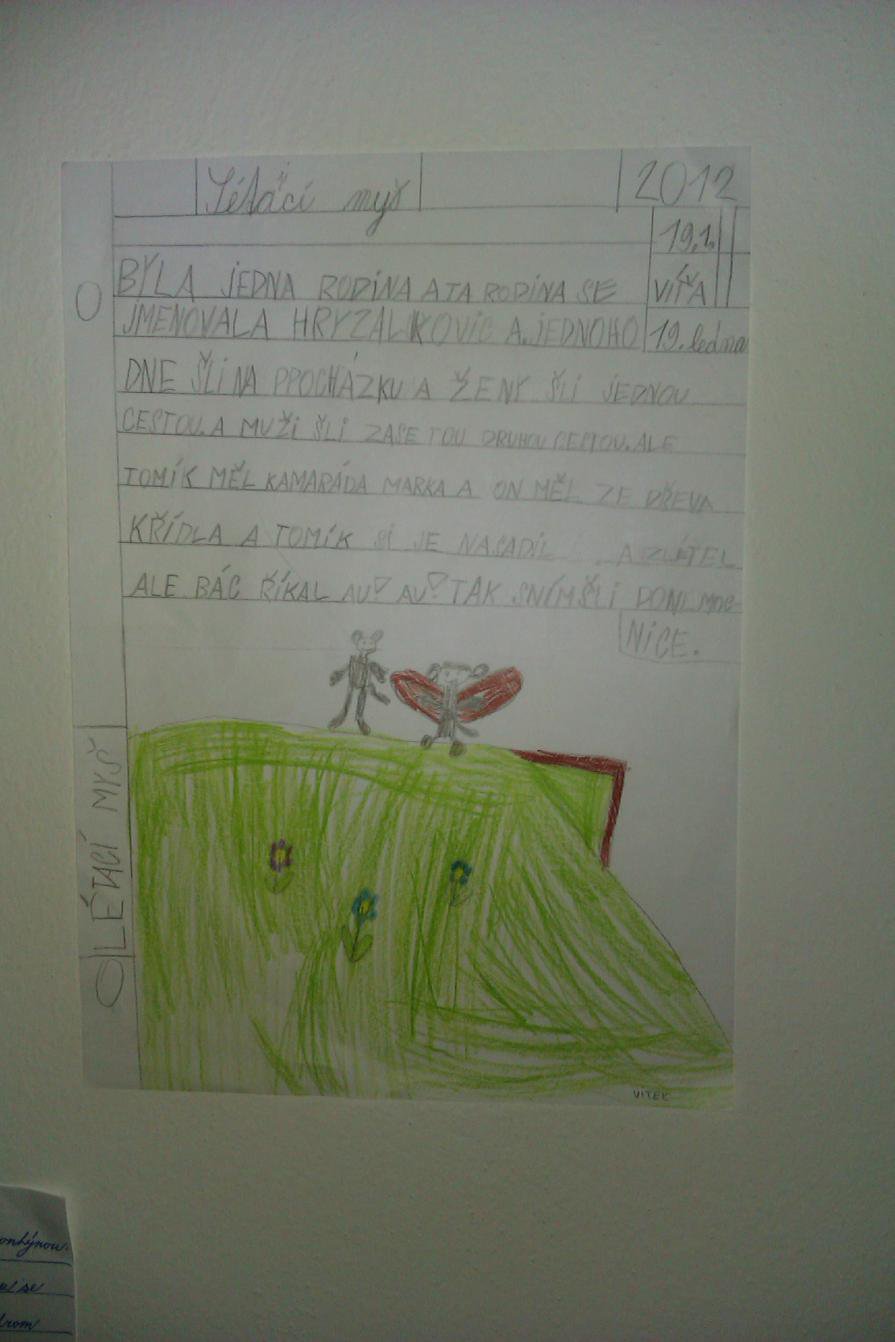 Létací myš 2012
19.1.
BYLA JEDNA RODINA A TA RODINA SE VÍŤA
JMENOVALA HRYZALKOVIC A JEDNOHO 19. ledna
DNE ŠLI NA PPOCHÁZKU A ŽENY ŠLI JEDNOU
CESTOU. A MUŽI ŠLI ZASE TOU DRUHOU CESTOU. ALE
TOMÍK MĚL KAMARÁDA MARKA A ON MĚL ZE DŘEVA
KŘÍDLA A TOMÍK SI JE NASADIL A ZLÉTEL
ALE BÁC ŘÍKAL AU! AU! TAK SNÍMŠLI DONEMOC-
NICE.
LÉTACÍ MYŠ
VITEK
ui se